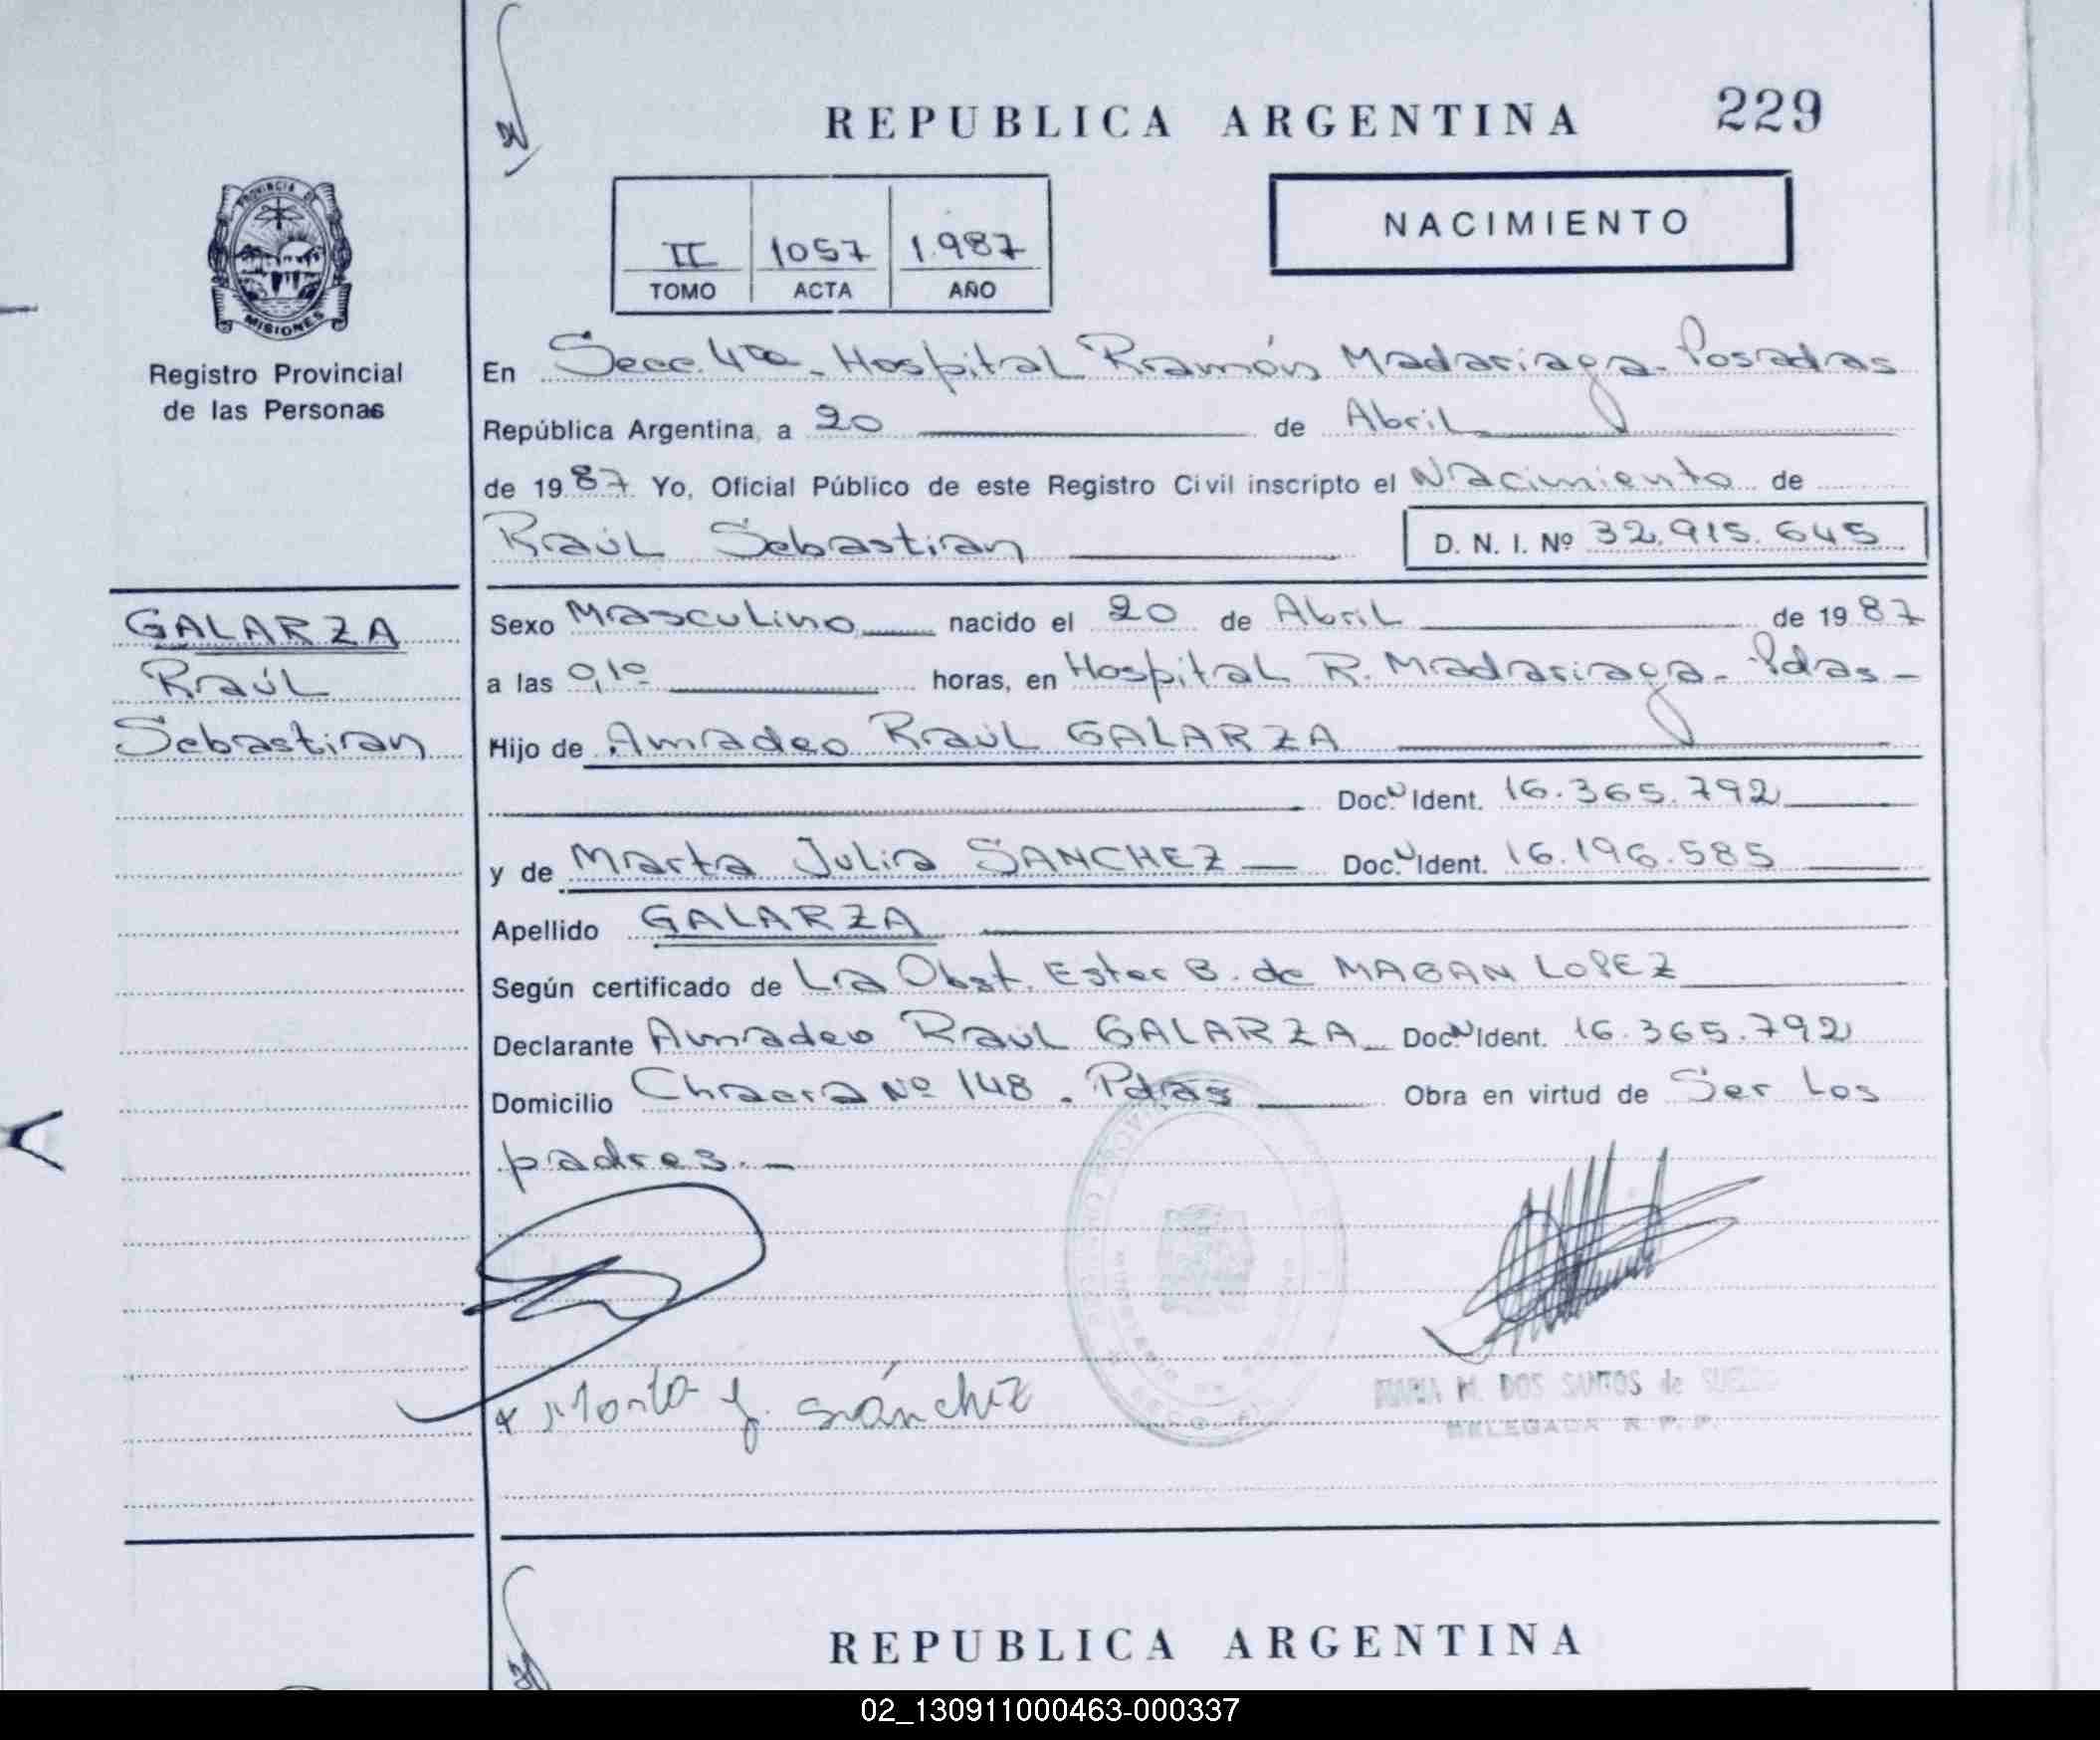 REPUBLICA ARGENTINA 229
PROVINCIA DE
MISIONES
Registro Provincial
de las Personas
II 1057 1.987
TOMO ACTA AÑO
NACIMIENTO
En Secc. 4ta. Hospital Ramón Madariaga. Posadas
República Argentina, a 20 de Abril
de 1987 Yo, Oficial Público de este Registro Civil inscripto el Nacimiento de
Raúl Sebastian D. N. I. Nº 32.915.645
GALARZA
Raúl
Sebastian
Sexo Masculino nacido el 20 de Abril de 1987
a las 0,10 horas, en Hospital R. Madariaga. Pdas -
Hijo de Amadeo Raúl GALARZA
Doc. Ident. 16.365.792
y de Marta Julia SANCHEZ Doc. Ident. 16.196.585
Apellido GALARZA
Según certificado de La Obst. Ester B. de MAGAN LOPEZ
Declarante Amadeo Raúl GALARZA Doc. Ident. 16.365.792
Domicilio Chacra Nº 148. Pdas Obra en virtud de Ser los
padres.-
Marta J. Sánchez
MARIA M. DOS SANTOS de
DELEGADA R. P. P.
REPUBLICA ARGENTINA
02_130911000463-000337